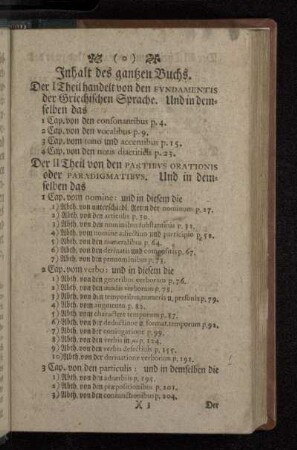 ( o )
Inhalt des gantzen Buchs.
Der I Theil handelt von den FVNDAMENTIS
der Griechischen Sprache. Und in dem-
selben das
1 Cap. von den consonantibus p. 4.
2 Cap. von den vocalibus p. 9.
3 Cap. vom tonis und accentibus p. 15.
4 Cap. von den notis diacriticis p. 23.
Der II Theil von den PARTIBVS ORATIONIS
oder PARADIGMATIBVS. Und in dem-
selben das
1 Cap. vom nomine: und in diesem die
1) Abth. von unterschiedl. Arten der nominum p. 27.
2) Abth. von den articulis p. 30.
3) Abth. von den nominibus substantivis p. 31.
4) Abth. vom nomine adjectivo und participio p. 52.
5) Abth. von den numeralibus p. 64.
6) Abth. von den derivatis und compositis p. 67.
7) Abth. von den pronominibus p. 71.
2 Cap. vom verbo: und in diesem die
1) Abth. von den generibus verborum p. 76.
2) Abth. von den modis verborum p. 78.
3) Abth. von den temporibus, numeris u. personis p. 79.
4) Abth. vom augmento p. 82.
5) Abth. vom charactere temporum p. 87.
6) Abth. von der deductione & format. temporum p. 92.
7) Abth. von der conjugatione p. 99.
8) Abth. von den verbis in p. 104.
9) Abth. von den verbis defectivis p. 155.
10) Abth. von der derivatione verborum p. 191.
3 Cap. von den particulis: und in demselben die
1) Abth. von den adverbiis p. 195.
2) Abth. von den præpositionibus p. 201.
3) Abth. von den conjunctionibus p. 204.
X 3 Der